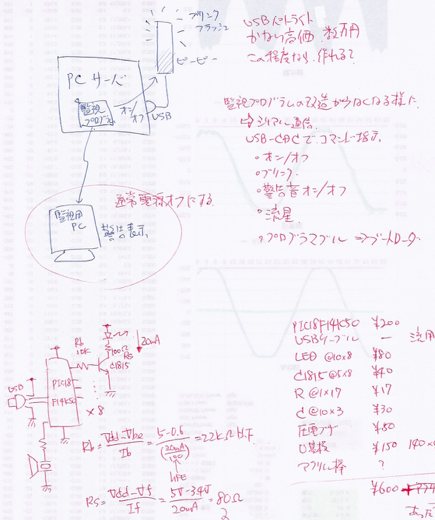 ブリンク
フラッシュ
ピーピー
PCサーバ
監視
プログラム
オン/オフ
USB
USBパトライト
かなり高価 数万円
この程度なら作れる?
監視プログラムの改造が少なくなる様に
⇒シリアル通信
USB-CDCでコマンド指示.
・オン/オフ
・ブリンク.
・警告音オン/オフ
・流星
・プログラマブル ⇒ブートローダ
通常電源オフにする
監視用
PC
警告表示.
Rb
10K
100Ω
Rs
20mA
C1815
USB
PIC18
F14K50
×8
Rb = (Vdd-Vbe)/Ib = (5-0.6)/(20mA/150) = 22kΩ以下
hFE
Rs = (Vdd-Vf)/If = (5V-3.4V)/20mA = 80Ω
PIC18F14K50 ¥200
USBケーブル — 流用
LED @10×8 ¥80
C1815 @5×8 ¥40
R @1×17 ¥17
C @10×3 ¥30
圧電ブザ ¥50
U基板 ¥150
アクリル棒 ?
¥600